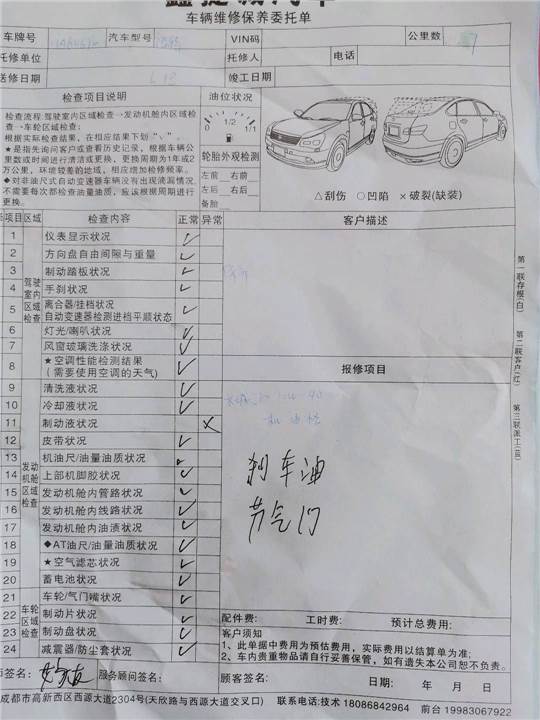 车辆维修保养委托单
车牌号 汽车型号 VIN码 公里数
托修单位 托修人 电话
送修日期 竣工日期
检查项目说明 油位状况
检查流程:驾驶室内区域检查→发动机舱内区域检
查→车轮区域检查;
根据实际检查结果，在相应结果下划“√”。
★是指先询问客户或查看历史记录，根据车辆公
里数或时间进行清洁或更换，更换周期为1年或2
万公里，环境较差的地域，相应增加检修频率。
◆对非油尺式自动变速器车辆没有出现渗漏情况，
不需要每次都检查油量油质，应该根据周期进行
更换。
0 1/2 1/1
轮胎外观检测
左前 右前
左后 右后
备胎
△刮伤 ○凹陷 ×破裂(缺装)
项目 区域 检查内容 正常 异常 客户描述
驾驶室内区域检查
1 仪表显示状况 √
2 方向盘自由间隙与重量 √
3 制动踏板状况 √
4 手刹状况 √
5 离合器/挂档状况
自动变速器检测进档平顺状态 √
6 灯光/喇叭状况 √
7 风窗玻璃洗涤状况 √
8 ★空调性能检测结果
(需要使用空调的天气) √
报修项目
发动机舱区域检查
9 清洗液状况 √
10 冷却液状况 √
11 制动液状况 ×
12 皮带状况 √
13 机油尺/油量油质状况 √
14 上部机脚胶状况 √
15 发动机舱内管路状况 √
16 发动机舱内线路状况 √
17 发动机舱内油渍状况 √
18 ◆AT油尺/油量油质状况 √
19 ★空气滤芯状况 √
20 蓄电池状况 √
机油
刹车油
节气门
车轮区域检查
21 车轮/气门嘴状况 √
22 制动片状况 √
23 制动盘状况 √
24 减震器/防尘套状况 √
配件费: 工时费: 预计总费用:
客户须知
1、此单据中费用为预估费用，实际费用以结算单为准;
2、车内贵重物品请自行妥善保管，如有遗失本公司恕不负责。
签名: 服务顾问签名: 顾客签名: 日期: 年 月 日
成都市高新西区西源大道2304号(天欣路与西源大道交叉口) 联系电话:技术 18086842964 前台 19983067922
第一联存根(白)
第二联客户(红)
第三联派工(蓝)